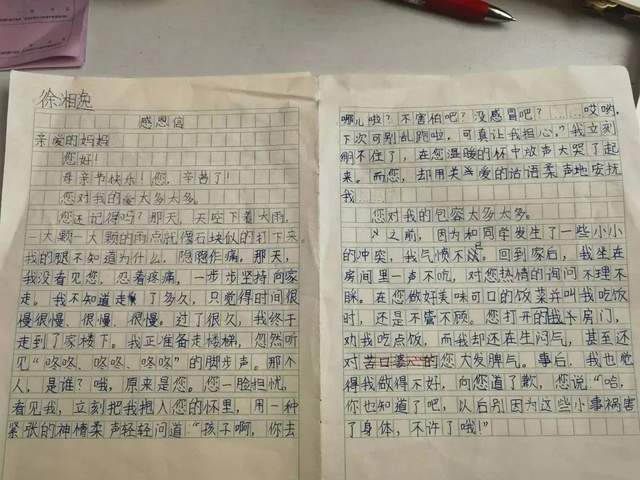 徐湘逸
感恩信
亲爱的妈妈
您好！
母亲节快乐！您，辛苦了！
您对我的爱太多太多。
您还记得吗？那天，天空下着大雨，
一大颗一大颗的雨点就像石块似的打下来。
我的腿不知道为什么，隐隐作痛。那天，
我没看见您，忍着疼痛，一步步坚持向家
走。我不知道走了多久，只觉得时间很
慢很慢、很慢、很慢。过了很久，我终于
走到了家楼下。我正准备走楼梯，忽然听
见“咚咚、咚咚、咚咚”的脚步声。那个
人，是谁？哦，原来是您。您一脸担忧，
看见我，立刻把我抱入您的怀里，用一种
紧张的神情柔声轻轻问道“孩子啊，你去
哪儿啦？不害怕吧？没感冒吧？……哎哟，
下次可别乱跑啦，可真让我担心。”我立刻
绷不住了，在您温暖的怀中放声大哭了起
来。而您，却用关爱的话语柔声地安抚
我……
您对我的包容太多太多。
之前，因为和同学发生了一些小小
的冲突，我气愤不已。回到家后，我坐在
房间里一声不吭，对您热情的询问不理不
睬。在您做好美味可口的饭菜并叫我吃饭
时，还是不管不顾。您打开的我房门，
劝我吃点饭，而我却还在生闷气，甚至还
对苦口婆心的您大发脾气。事后，我也觉
得我做得不好，向您道了歉，您说“哈，
你也知道了吧，以后别因为这些小事祸害
了身体，不许了哦！”